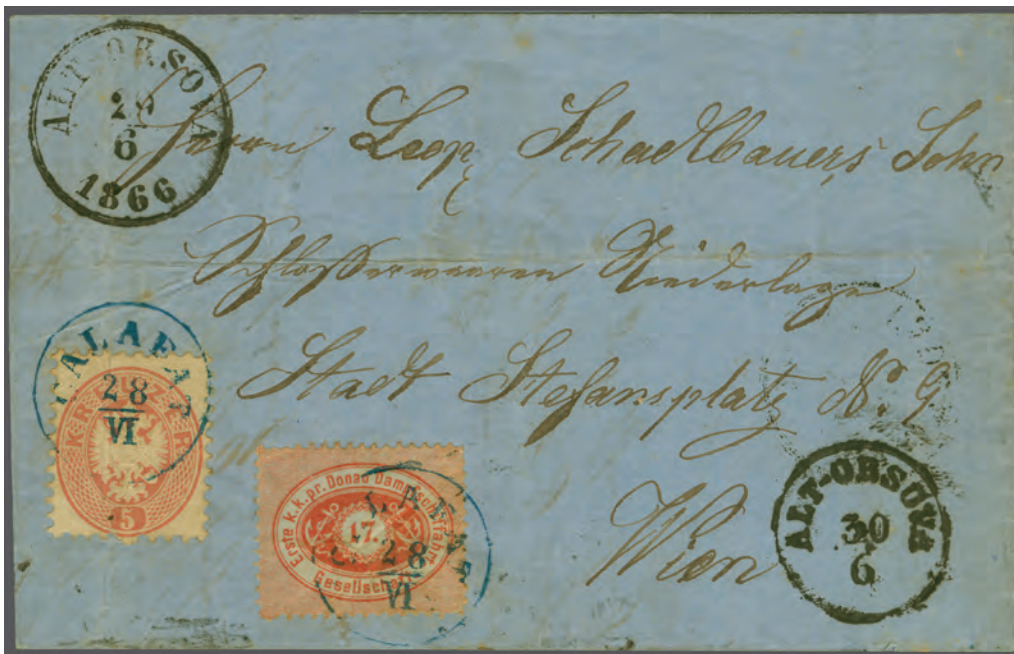 ALT-ORSOVA
29
6
1866
Herrn Leop. Schaelbauers Sohn
Schlosserwaaren Niederlage
Stadt Stefansplatz N. 9
Wien
CALAFAT
28
VI
KREUZER
5
Erste k.k.pr. Donau Dampfschiffahrt
Gesellschaft
17.
CALAFAT
28
VI
ALT-ORSOVA
30
6